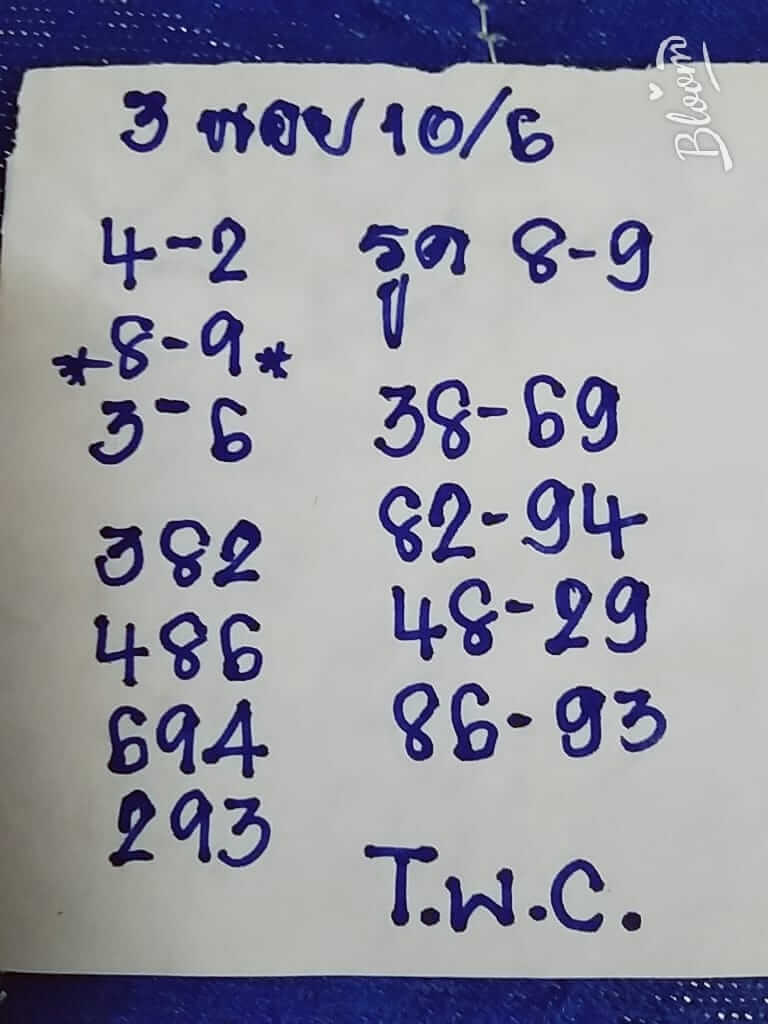 3 หอย 10/6
4-2
*8-9*
3-6
382
486
694
293
รูด 8-9
38-69
82-94
48-29
86-93
T.W.C.
Bloom